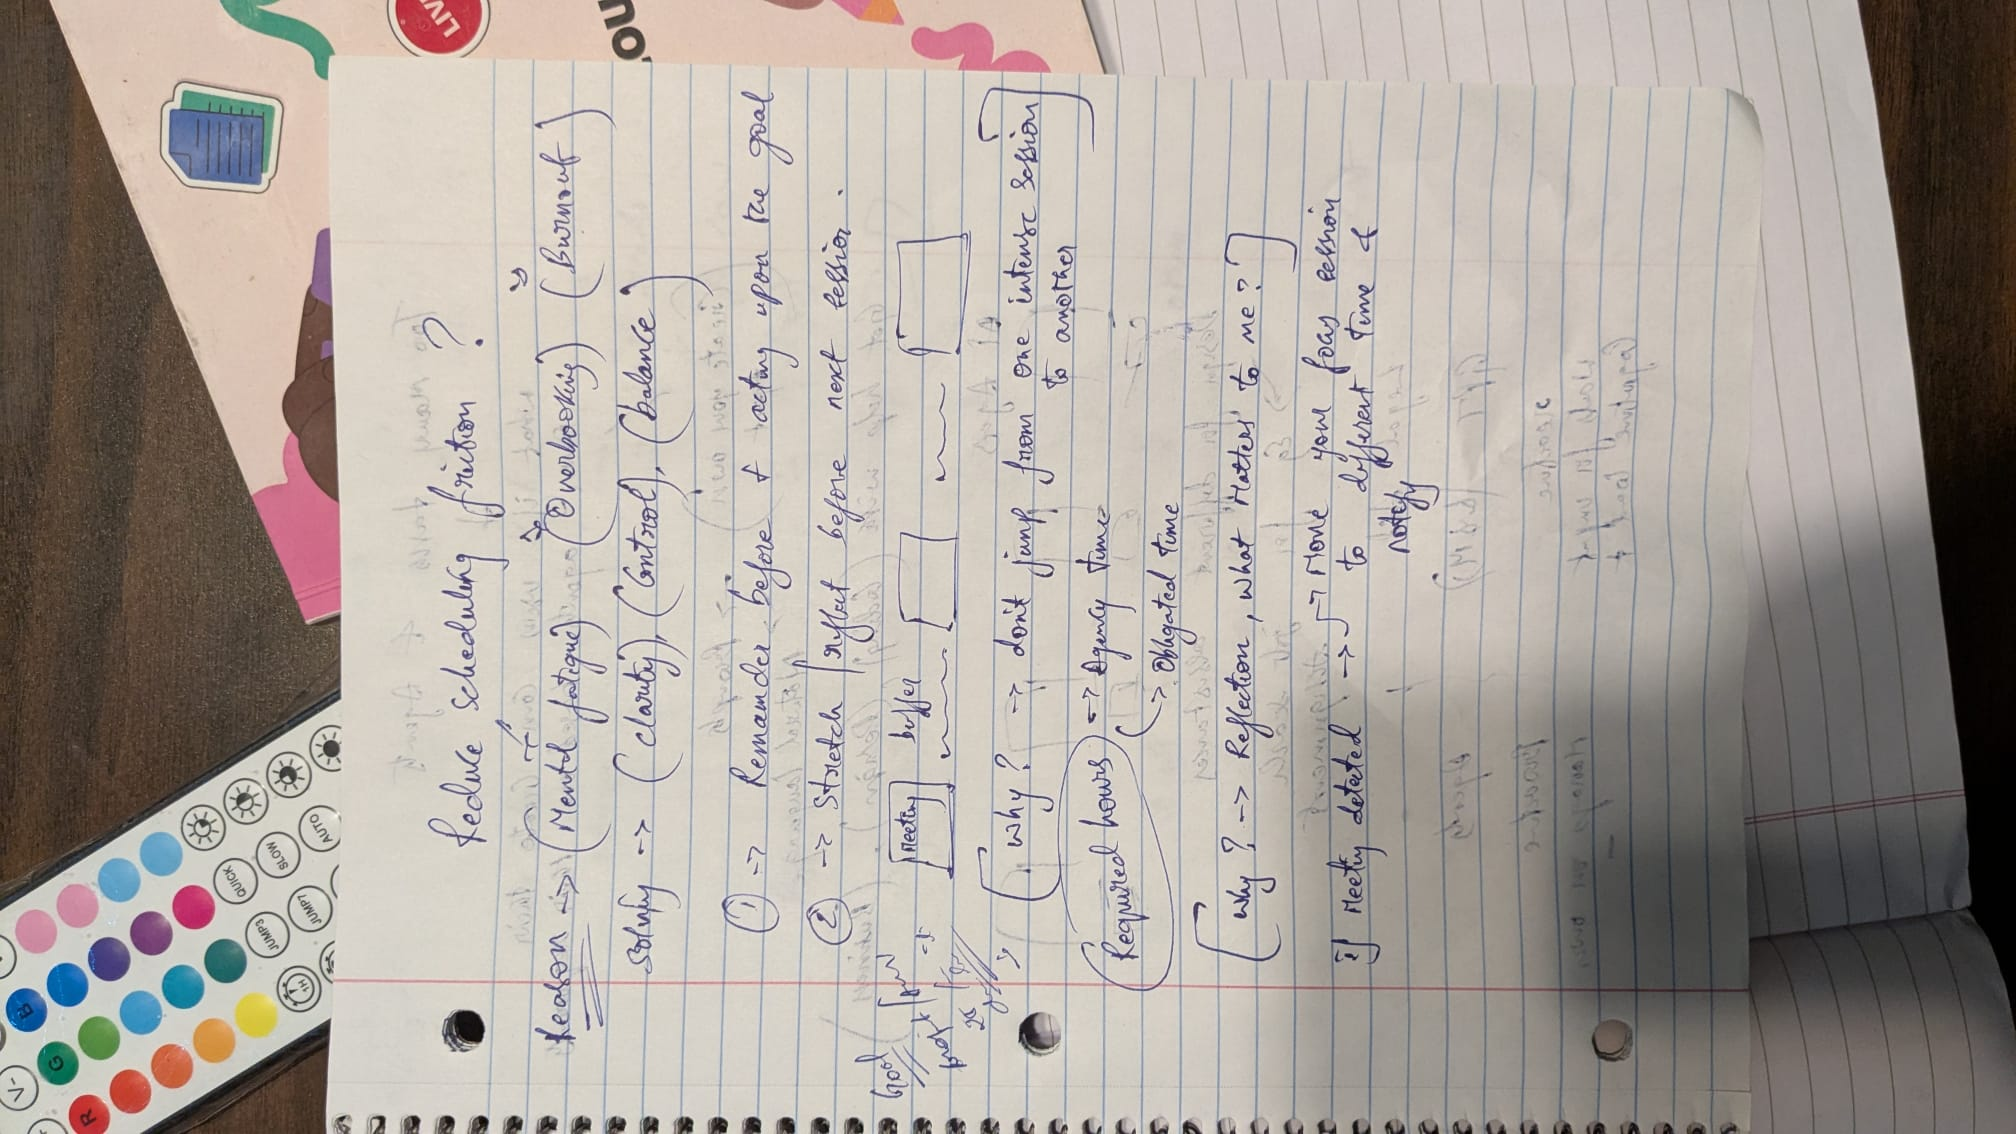 Reduce scheduling friction ?
Reason → (Mental fatigue) (Overbooking) (Burnout)
→ (clarity), (Control), (balance)
① → Remainder before + acting upon the goal
② → Stretch before next session.
Meeting buffer
[ Why? → don't jump from one intense session
to another ]
Required hours → Agency time
→ Obligated time
[ Why? → Reflection, what matters to me? ]
if Meeting detected → Move your focus session
to different time &
notify
Goal
LIV
R
G
B
V-
1H
JUMP3
JUMP7
QUICK
SLOW
AUTO